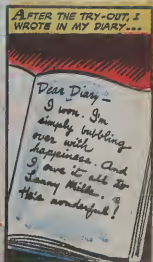 AFTER THE TRY-OUT, I
WROTE IN MY DIARY...
Dear Diary –
I won. I'm
simply bubbling
over with
happiness. And
I owe it all to
Lenny Miller.
He's wonderful!